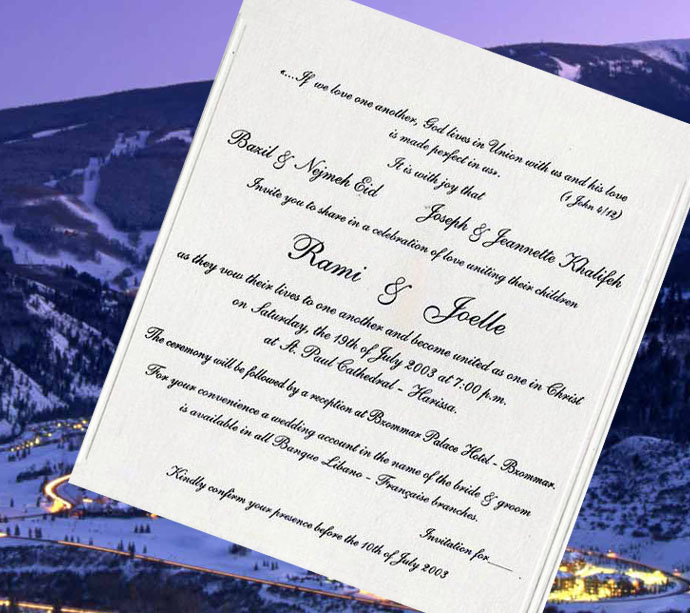 «....If we love one another, God lives in Union with us and his love
is made perfect in us».
(1 John 4/12)
It is with joy that
Bazil & Nejmeh Eid
Joseph & Jeannette Khalifeh
Invite you to share in a celebration of love uniting their children
Rami & Joelle
as they vow their lives to one another and become united as one in Christ
on Saturday, the 19th of July 2003 at 7:00 p.m.
at St. Paul Cathedral - Harissa.
The ceremony will be followed by a reception at Bxommar Palace Hotel - Bxommar.
For your convenience a wedding account in the name of the bride & groom
is available in all Banque Libano - Française branches.
Invitation for____ .
Kindly confirm your presence before the 10th of July 2003